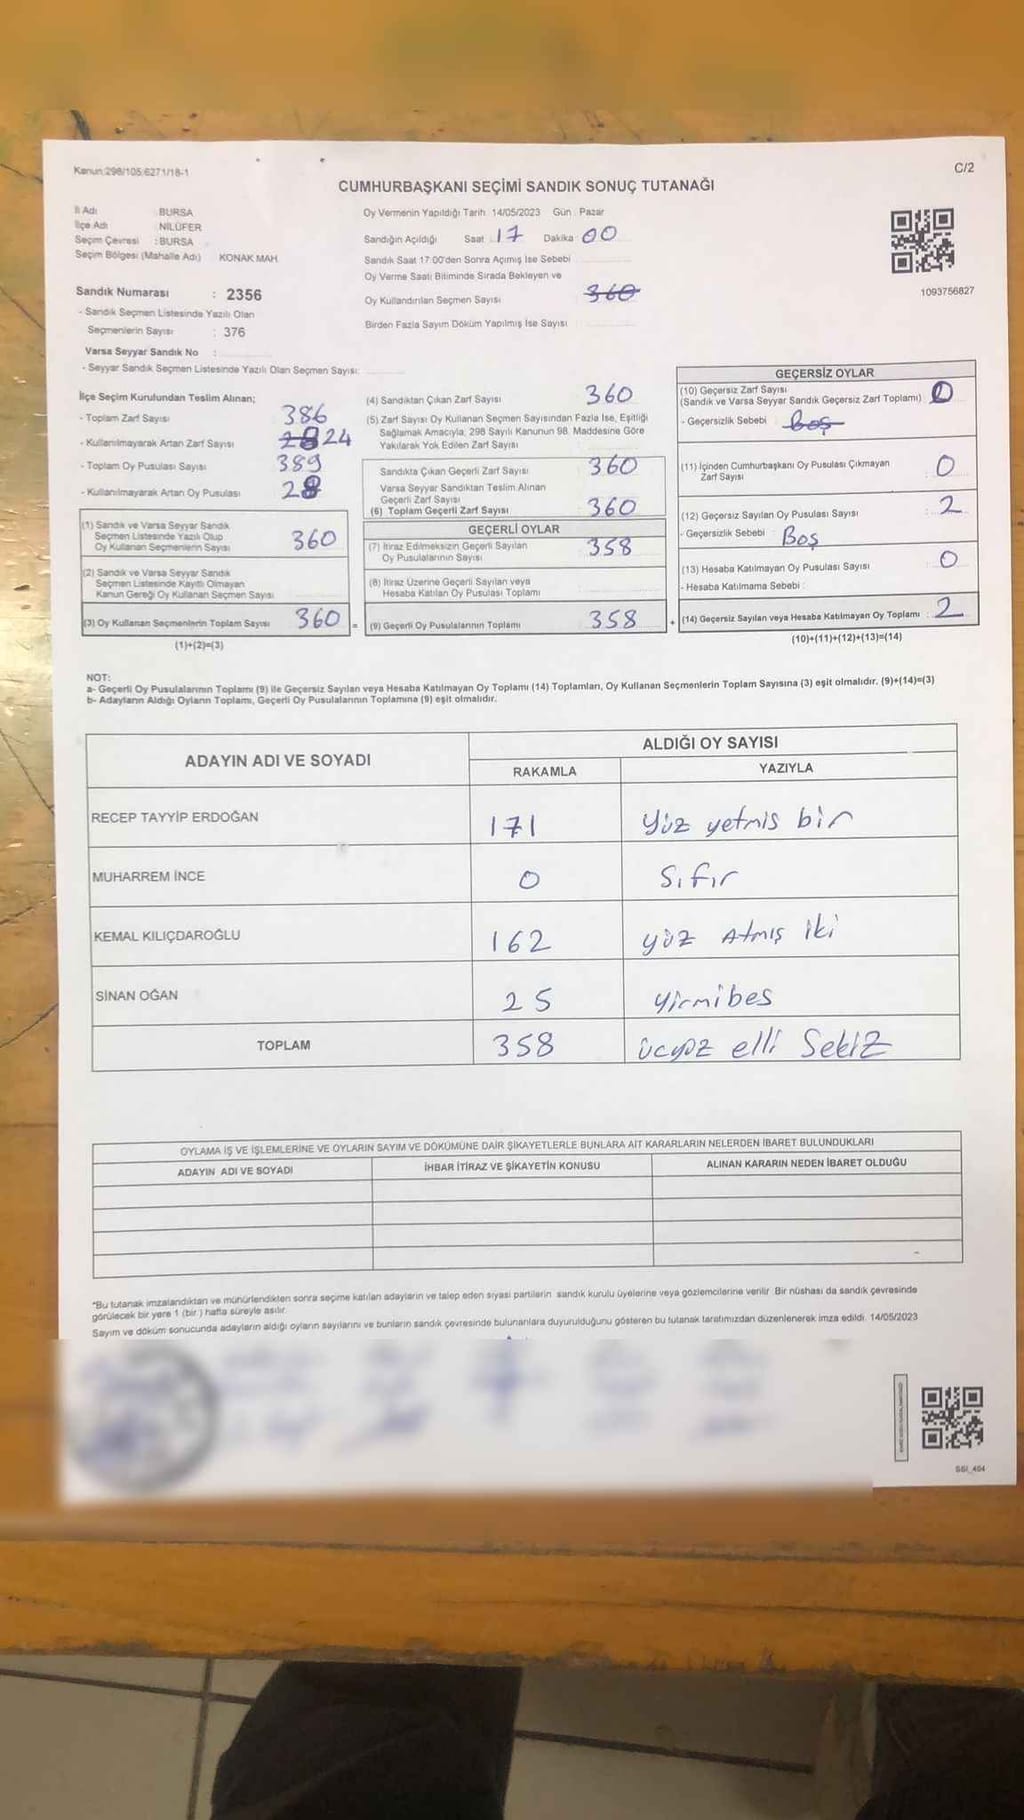 Kanun:298/105;6271/18-1
C/2
CUMHURBAŞKANI SEÇİMİ SANDIK SONUÇ TUTANAĞI
İl Adı : BURSA
İlçe Adı : NİLÜFER
Seçim Çevresi : BURSA
Seçim Bölgesi (Mahalle Adı) KONAK MAH.
Sandık Numarası : 2356
- Sandık Seçmen Listesinde Yazılı Olan
Seçmenlerin Sayısı : 376
Varsa Seyyar Sandık No :
- Seyyar Sandık Seçmen Listesinde Yazılı Olan Seçmen Sayısı:
Oy Vermenin Yapıldığı Tarih : 14/05/2023 Gün : Pazar
Sandığın Açıldığı Saat : 17 Dakika 00
Sandık Saat 17:00'den Sonra Açımış İse Sebebi
Oy Verme Saati Bitiminde Sırada Bekleyen ve
Oy Kullandırılan Seçmen Sayısı 360
Birden Fazla Sayım Döküm Yapılmış İse Sayısı
1093756827
İlçe Seçim Kurulundan Teslim Alınan;
- Toplam Zarf Sayısı 386
- Kullanılmayarak Artan Zarf Sayısı 24
- Toplam Oy Pusulası Sayısı 389
- Kullanılmayarak Artan Oy Pusulası 28
(1) Sandık ve Varsa Seyyar Sandık
Seçmen Listesinde Yazılı Olup
Oy Kullanan Seçmenlerin Sayısı 360
(2) Sandık ve Varsa Seyyar Sandık
Seçmen Listesinde Kayıtlı Olmayan
Kanun Gereği Oy Kullanan Seçmen Sayısı
(3) Oy Kullanan Seçmenlerin Toplam Sayısı 360 =
(1)+(2)=(3)
(4) Sandıktan Çıkan Zarf Sayısı 360
(5) Zarf Sayısı Oy Kullanan Seçmen Sayısından Fazla İse, Eşitliği
Sağlamak Amacıyla, 298 Sayılı Kanunun 98. Maddesine Göre
Yakılarak Yok Edilen Zarf Sayısı
Sandıkta Çıkan Geçerli Zarf Sayısı 360
Varsa Seyyar Sandıktan Teslim Alınan
Geçerli Zarf Sayısı
(6) Toplam Geçerli Zarf Sayısı 360
GEÇERLİ OYLAR
(7) İtiraz Edilmeksizin Geçerli Sayılan
Oy Pusulalarının Sayısı 358
(8) İtiraz Üzerine Geçerli Sayılan veya
Hesaba Katılan Oy Pusulası Toplamı
(9) Geçerli Oy Pusulalarının Toplamı 358 +
GEÇERSİZ OYLAR
(10) Geçersiz Zarf Sayısı
(Sandık ve Varsa Seyyar Sandık Geçersiz Zarf Toplamı) 0
- Geçersizlik Sebebi : Boş
(11) İçinden Cumhurbaşkanı Oy Pusulası Çıkmayan
Zarf Sayısı 0
(12) Geçersiz Sayılan Oy Pusulası Sayısı : 2
- Geçersizlik Sebebi : Boş
(13) Hesaba Katılmayan Oy Pusulası Sayısı : 0
- Hesaba Katılmama Sebebi :
(14) Geçersiz Sayılan veya Hesaba Katılmayan Oy Toplamı : 2
(10)+(11)+(12)+(13)=(14)
NOT:
a- Geçerli Oy Pusulalarının Toplamı (9) ile Geçersiz Sayılan veya Hesaba Katılmayan Oy Toplamı (14) Toplamları, Oy Kullanan Seçmenlerin Toplam Sayısına (3) eşit olmalıdır. (9)+(14)=(3)
b- Adayların Aldığı Oyların Toplamı, Geçerli Oy Pusulalarının Toplamına (9) eşit olmalıdır.
ADAYIN ADI VE SOYADI ALDIĞI OY SAYISI
RAKAMLA YAZIYLA
RECEP TAYYİP ERDOĞAN 171 Yüz yetmis bir
MUHARREM İNCE 0 Sıfır
KEMAL KILIÇDAROĞLU 162 yüz Atmış iki
SİNAN OĞAN 25 yirmibes
TOPLAM 358 ücyüz elli Sekiz
OYLAMA İŞ VE İŞLEMLERİNE VE OYLARIN SAYIM VE DÖKÜMÜNE DAİR ŞİKAYETLERLE BUNLARA AİT KARARLARIN NELERDEN İBARET BULUNDUKLARI
ADAYIN ADI VE SOYADI İHBAR İTİRAZ VE ŞİKAYETİN KONUSU ALINAN KARARIN NEDEN İBARET OLDUĞU
*Bu tutanak imzalandıktan ve mühürlendikten sonra seçime katılan adayların ve talep eden siyasi partilerin sandık kurulu üyelerine veya gözlemcilerine verilir. Bir nüshası da sandık çevresinde
görülecek bir yere 1 (bir ) hafta süreyle asılır.
Sayım ve döküm sonucunda adayların aldığı oyların sayılarını ve bunların sandık çevresinde bulunanlara duyurulduğunu gösteren bu tutanak tarafımızdan düzenlenerek imza edildi. 14/05/2023